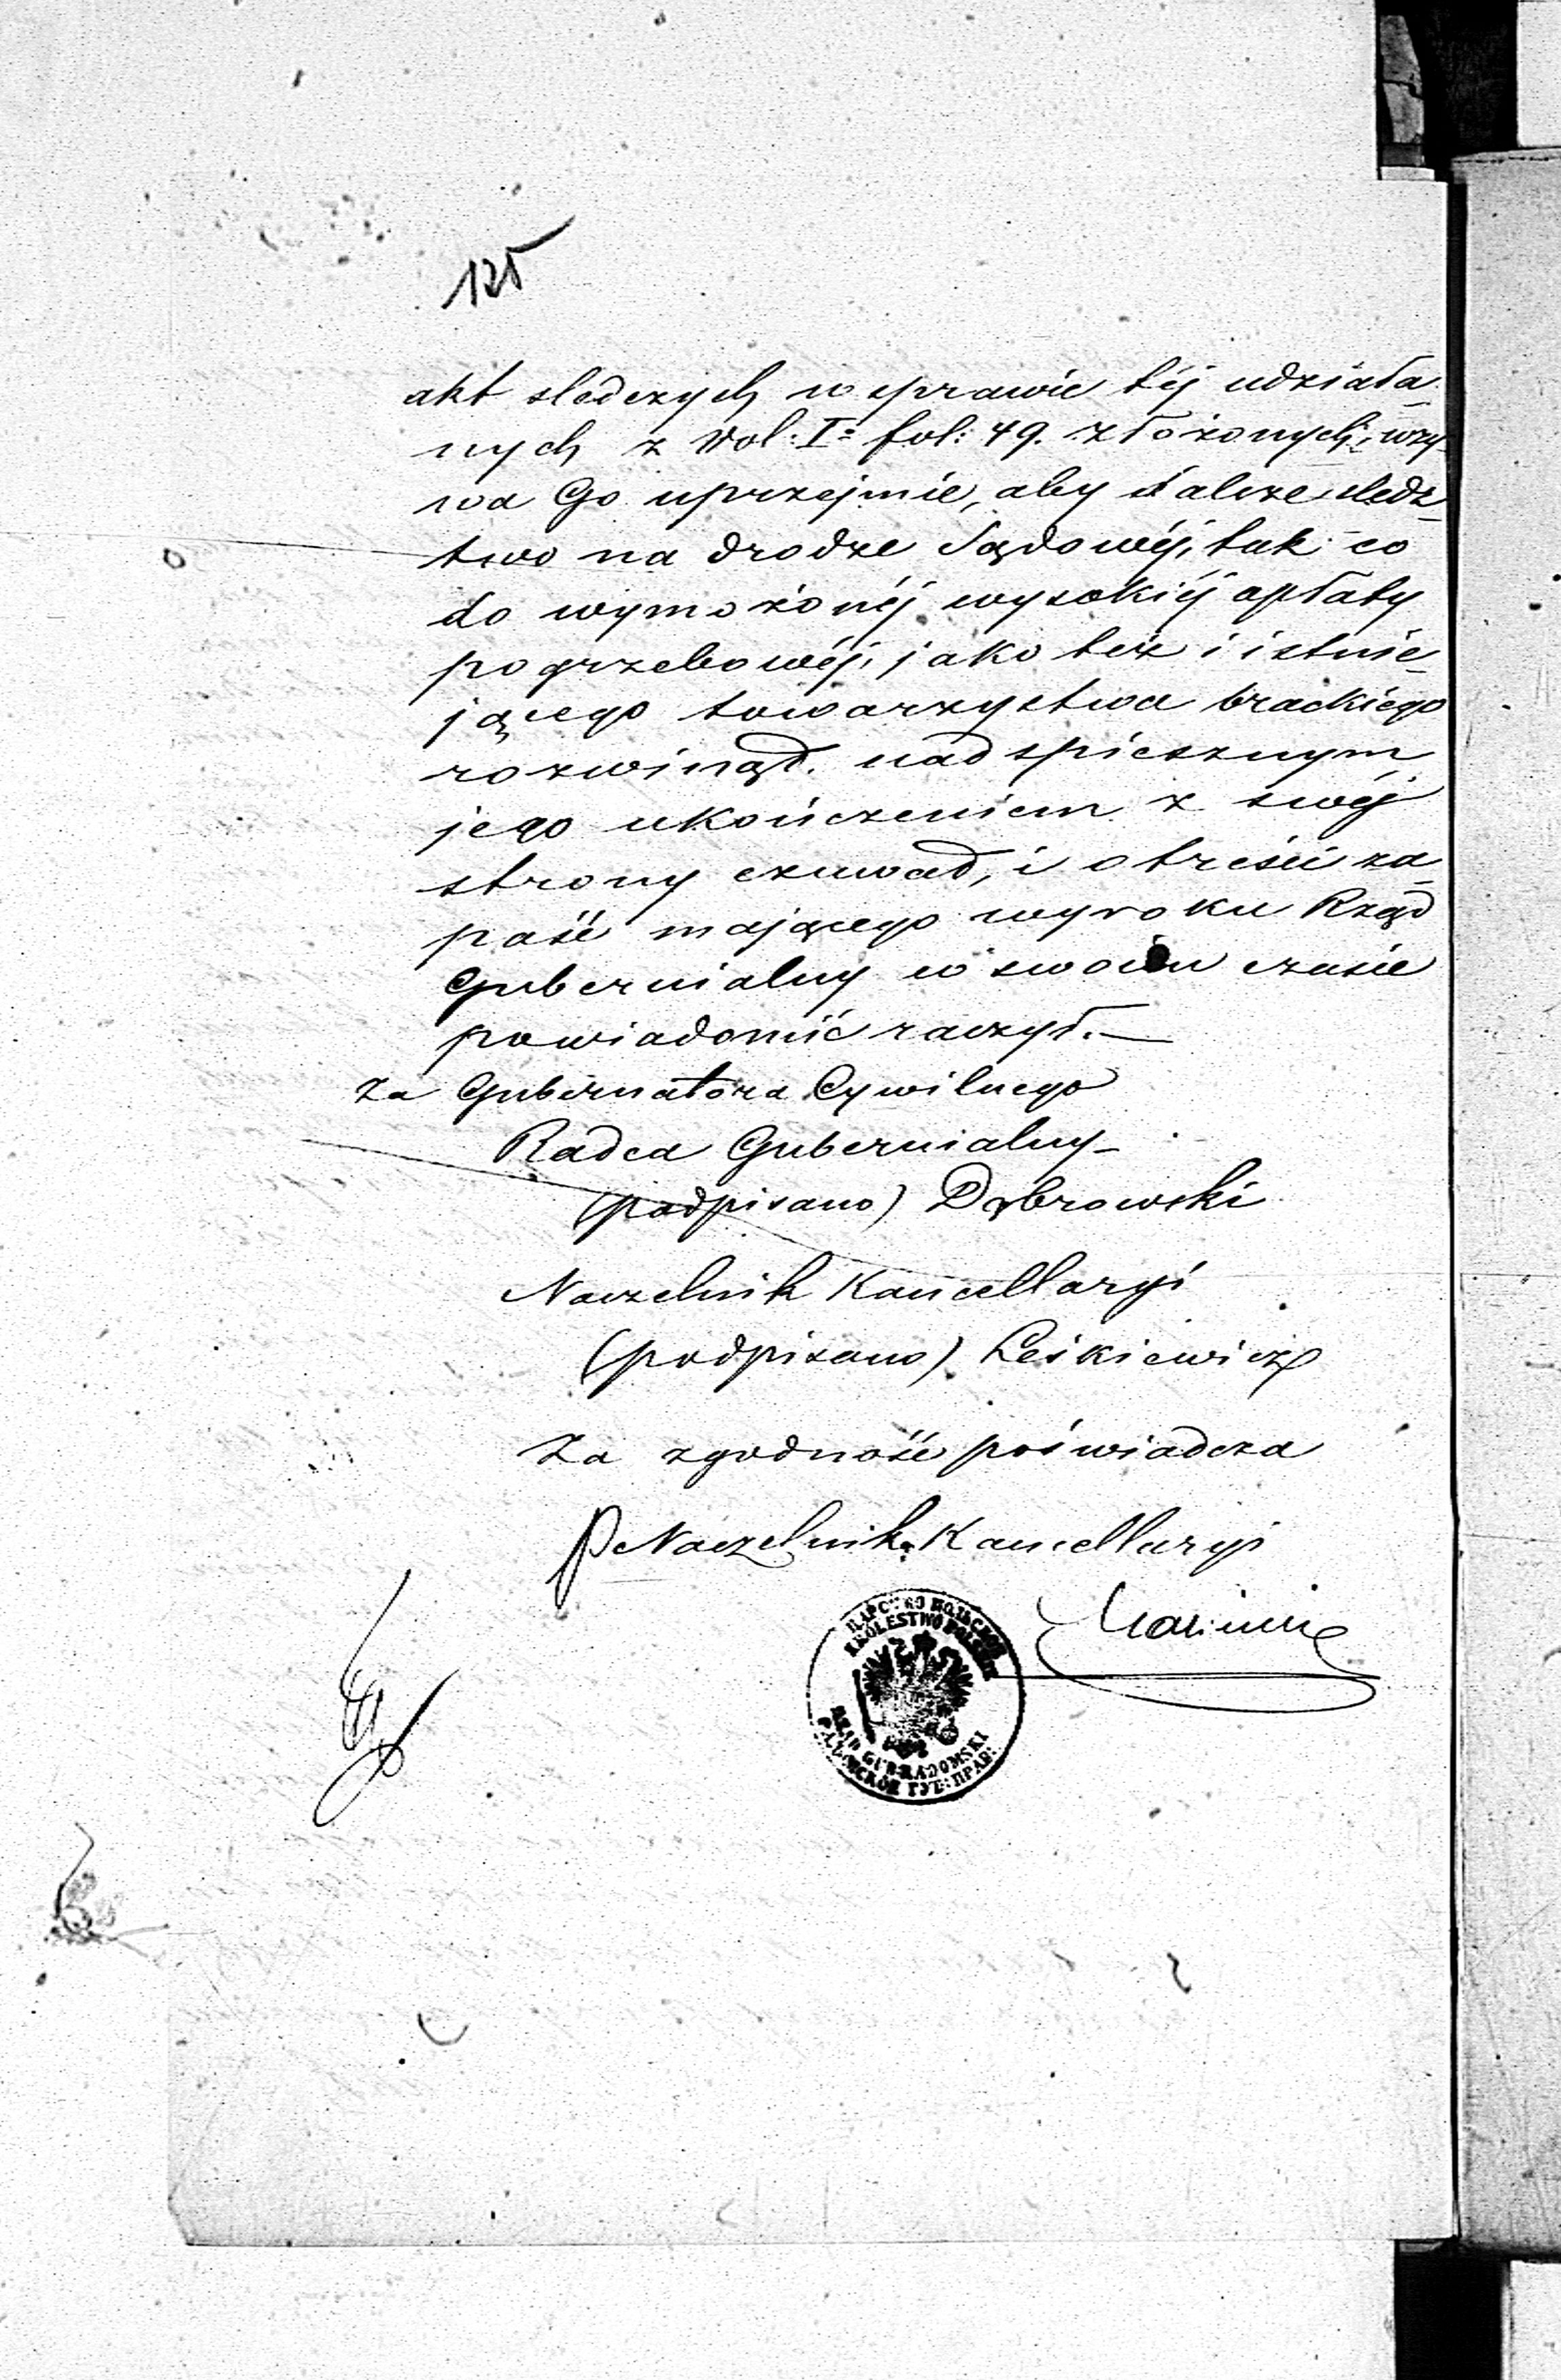 125
akt sledczych w sprawie téj udziała_
nych z Vol: I: fol: 49. złożonych, wzy_
wa Go uprzejmie, aby dalsze sledz_
two na drodze Sądowéj, tak co
do wymożonéj wysokiéj opłaty
pogrzebowéj, jako też i istnie_
jącego towarzystwa brackiego
rozwinął. nad spiesznym
jego ukończeniem z swéj
strony czuwał, i o treści za_
paść mającego wyroku Rząd
Gubernialny w swoim czasie
powiadomić raczył. —
Za Gubernatora Cywilnego
Radca Gubernialny_
(podpisano) Dąbrowski
Naczelnik Kancellaryi
(podpisano) Leśkiewicz
Za zgodność poświadcza
P Naczelnik Kancellaryi
ЦАРСТВО ПОЛЬСКОЕ
KRÓLESTWO POLSKIE
RZĄD GUB: RADOMSKI
РАДОМСКОЕ ГУБ: ПРАВ: